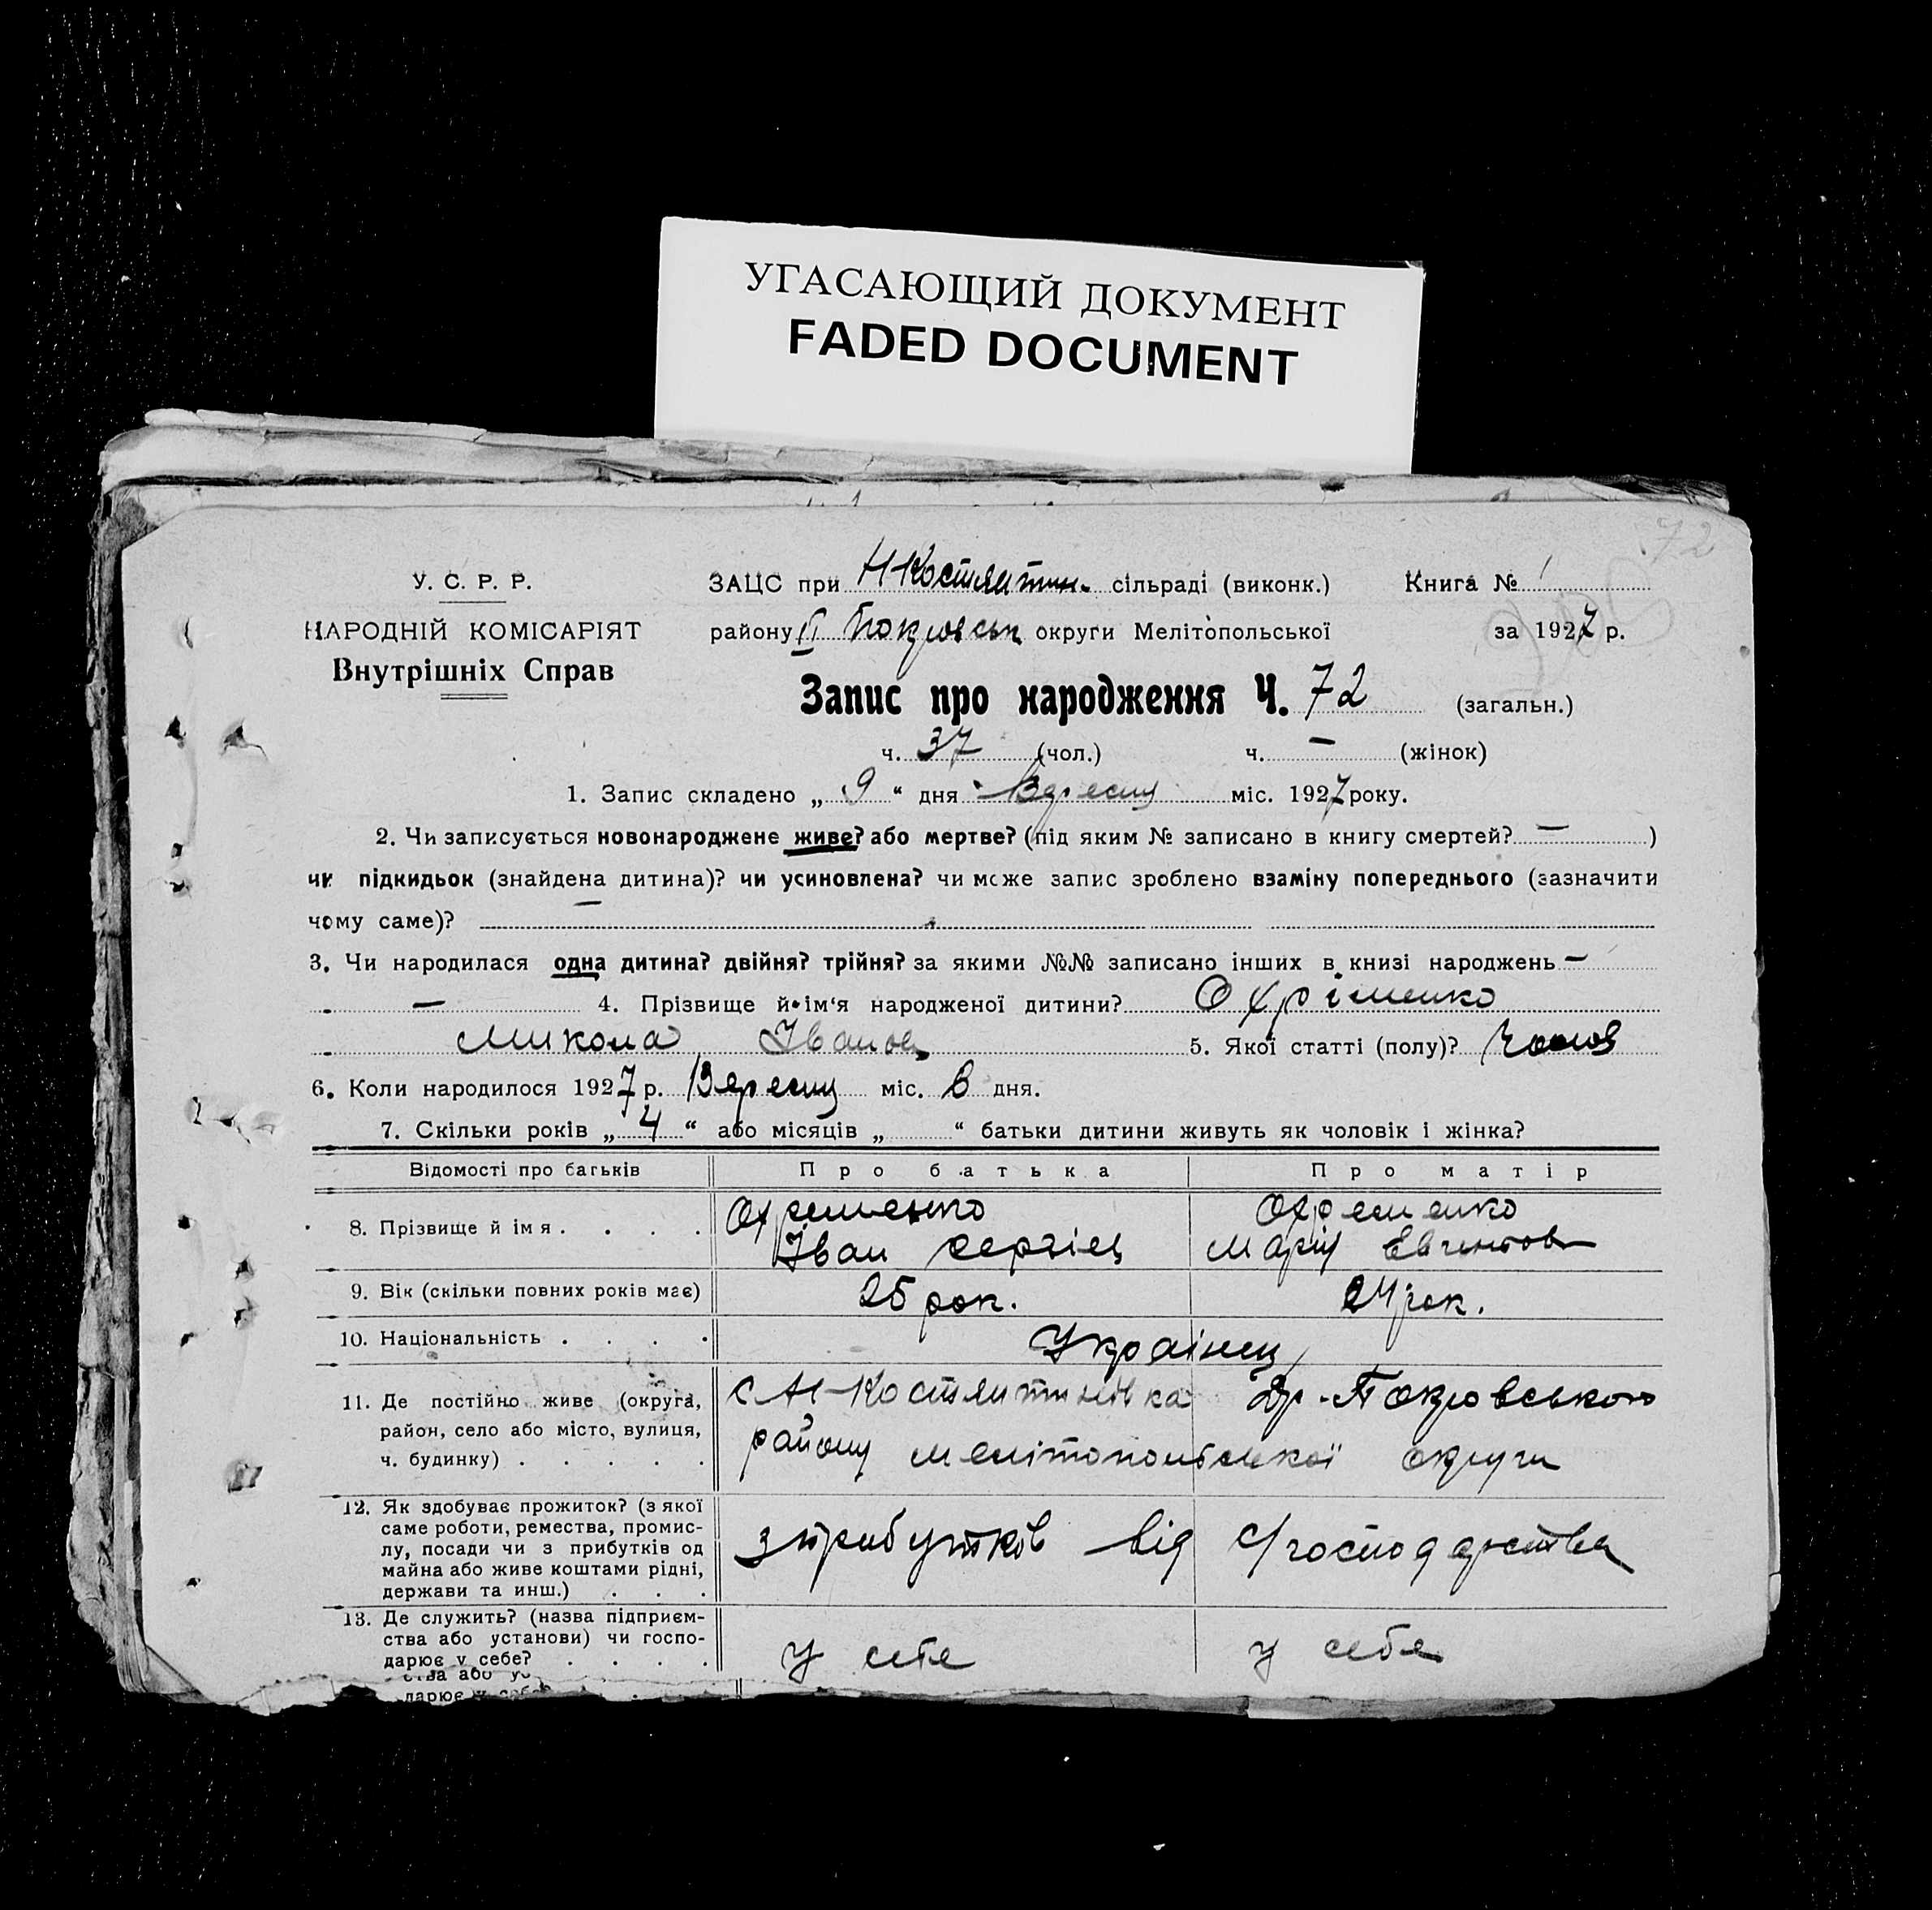 УГАСАЮЩИЙ ДОКУМЕНТ
FADED DOCUMENT
72
У. С. Р. Р.
НАРОДНІЙ КОМІСАРІЯТ
Внутрішніх Справ
ЗАЦС при Н-Костянтин. сільраді (виконк.) Книга № 1
району ІІ Покровськ округи Мелітопольської за 1927 р.
Запис про народження Ч. 72 (загальн.)
ч. 37 (чол.) ч. — (жінок)
1. Запис складено „ 9 “ дня Вересня міс. 1927 року.
2. Чи записується новонароджене живе? або мертве? (під яким № записано в книгу смертей? — )
чи підкидьок (знайдена дитина)? чи усиновлена? чи може запис зроблено взаміну попереднього (зазначити
чому саме)? —
3. Чи народилася одна дитина? двійня? трійня? за якими №№ записано інших в книзі народжень —
— 4. Прізвище й ім‘я народженої дитини? Охріменко
Микола Іванов 5. Якої статті (полу)? Чолов
6. Коли народилося 1927 р. Вересня міс. 6 дня.
7. Скільки років „ 4 “ або місяців „ “ батьки дитини живуть як чоловік і жінка?
Відомості про батьків Про батька Про матір
8. Прізвище й ім я . . . . Охременко Охременко
Іван Сергіев Марія
9. Вік (скільки повних років має) 25 рок. 24 рок.
10. Національність . . . . Українці
11. Де постійно живе (округа, район, село або місто, вулиця, ч. будинку) . . . . . с Н-Костянтинівка Др-Покровського
району мелітопольської округи
12. Як здобуває прожиток? (з якої
саме роботи, ремества, промис-
лу, посади чи з прибутків од
майна або живе коштами рідні,
держави та инш.) . . .
з прибутків від с/господарства
13. Де служить? (назва підприєм-
ства або установи) чи госпо-
дарює у себе? . . . .
у себе у себе
ства або ус
дарює у себе?